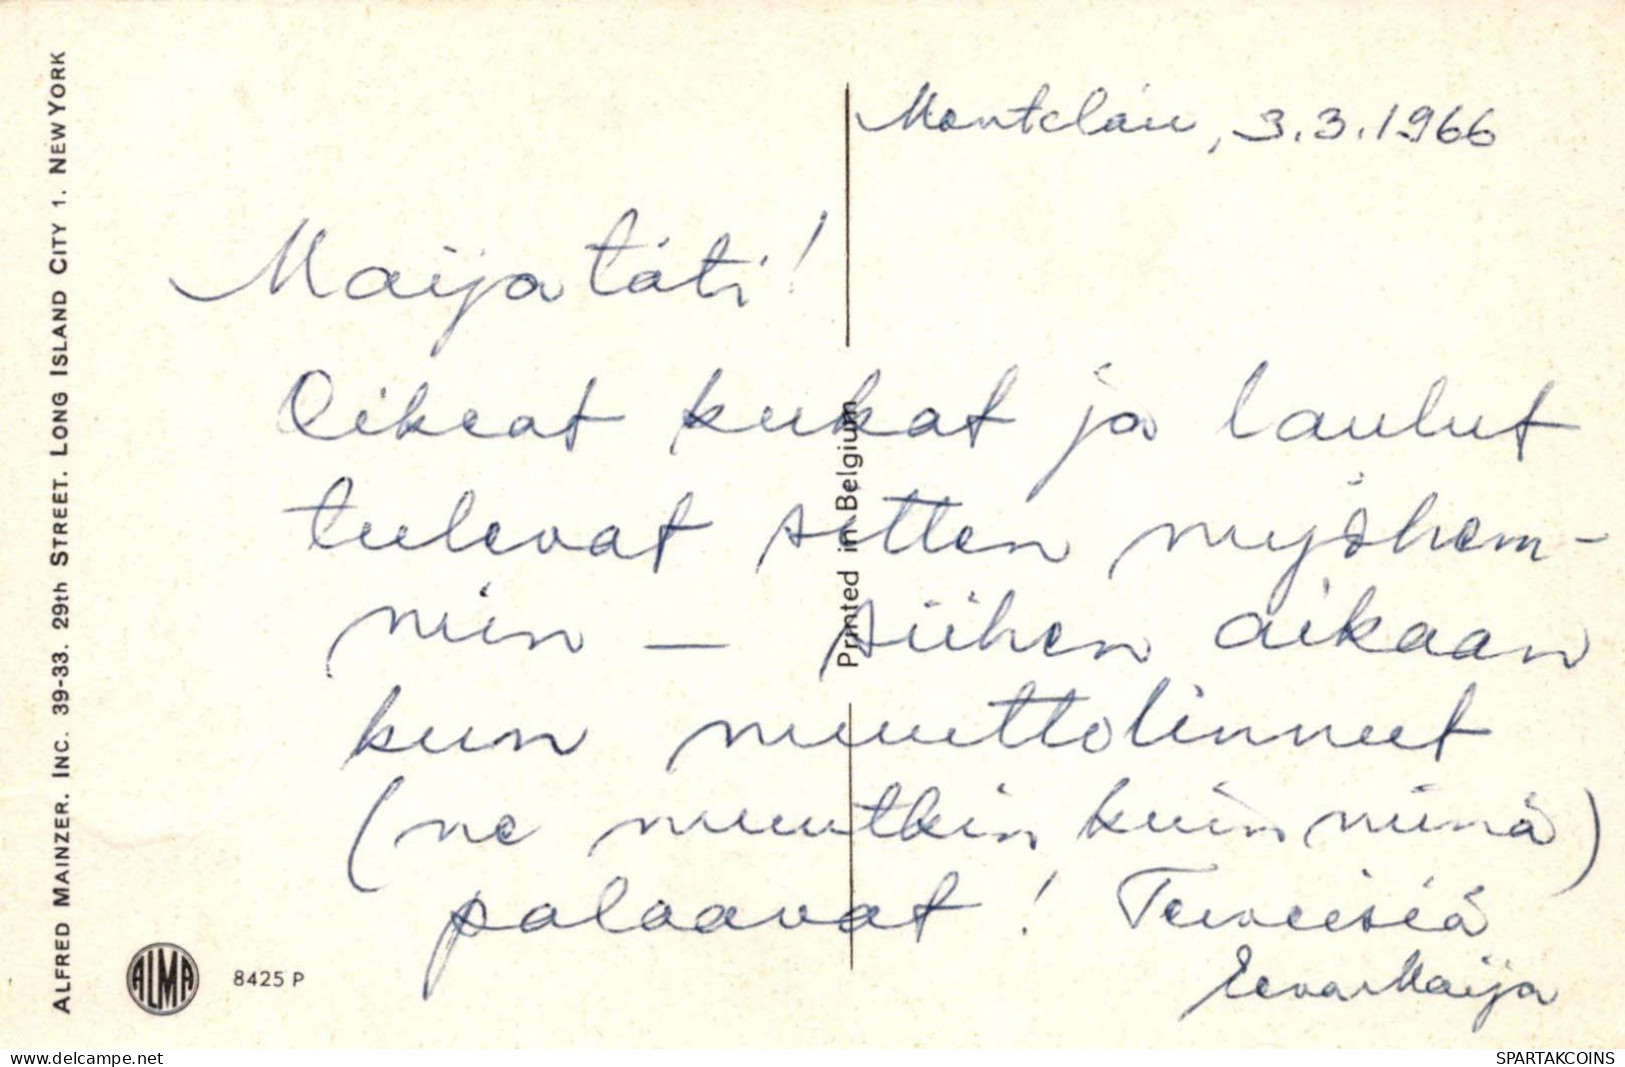 Montclair, 3.3.1966
Maija täti!
Oikeat kukat ja laulut
tulevat sitten myöhem-
min — siihen aikaan
kun muuttolinnut
(ne muutkin kuin minä)
palaavat! Terveisiä
Eeva-Maija
ALFRED MAINZER. INC. 39-33. 29th STREET. LONG ISLAND CITY 1. NEW YORK
Printed in Belgium
ALMA
8425 P
www.delcampe.net
SPARTAKCOINS